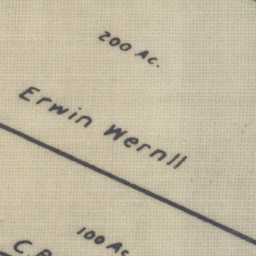 200 Ac.
Erwin Wernll
100 Ac
C.